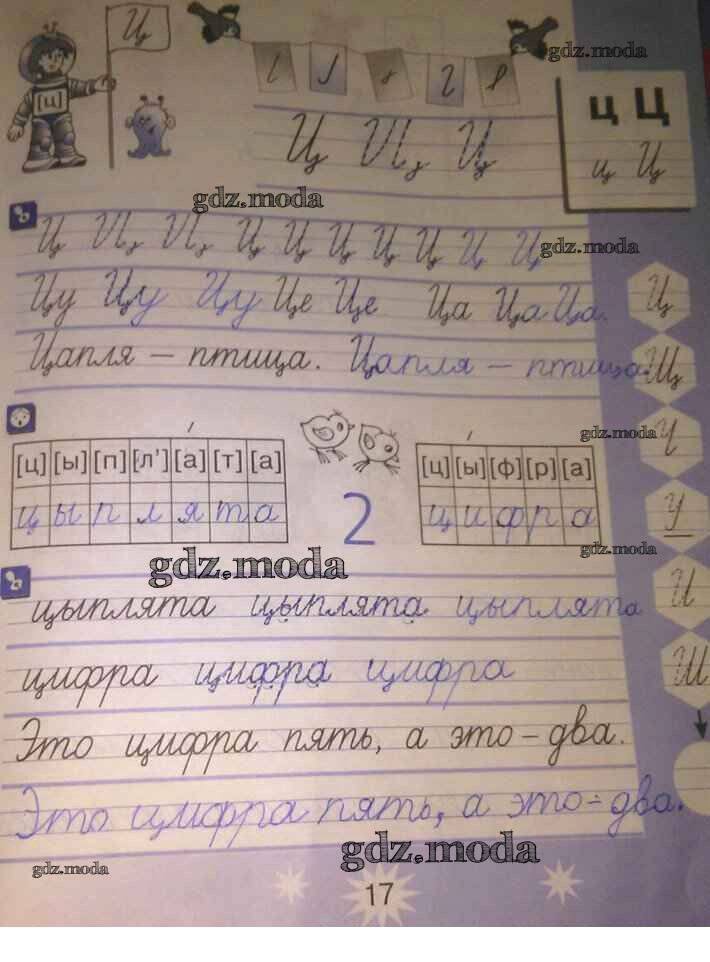 Ц
[ц]
gdz.moda
ц Ц
ц Ц
Ц Ц Ц
gdz.moda
Ц Ц Ц Ц Ц Ц Ц Ц Ц Ц
gdz.moda
Цу Цу Цу Це Це Ца Ца Ца.
Ц
Цапля – птица. Цапля – птица.
Щ
[ц] [ы] [п] [л'] [а] [т] [а]
[ц] [ы] [ф] [р] [а]
gdz.moda
Ч
цыплята
2
цифра
У
gdz.moda
gdz.moda
цыплята цыплята цыплята
И
цифра цифра цифра
Ш
Это цифра пять, а это – два.
Это цифра пять, а это – два.
gdz.moda
gdz.moda
17
gdz.moda